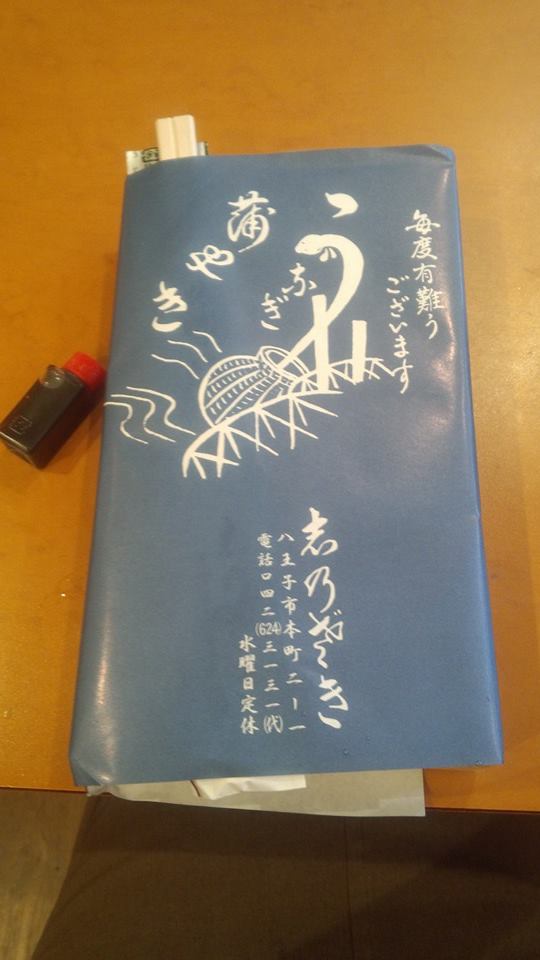 毎度有難う
ございます
うなぎ
蒲やき
志乃ざき
八王子市本町二ー一
電話〇四二(624)三一三一(代)
水曜日定休